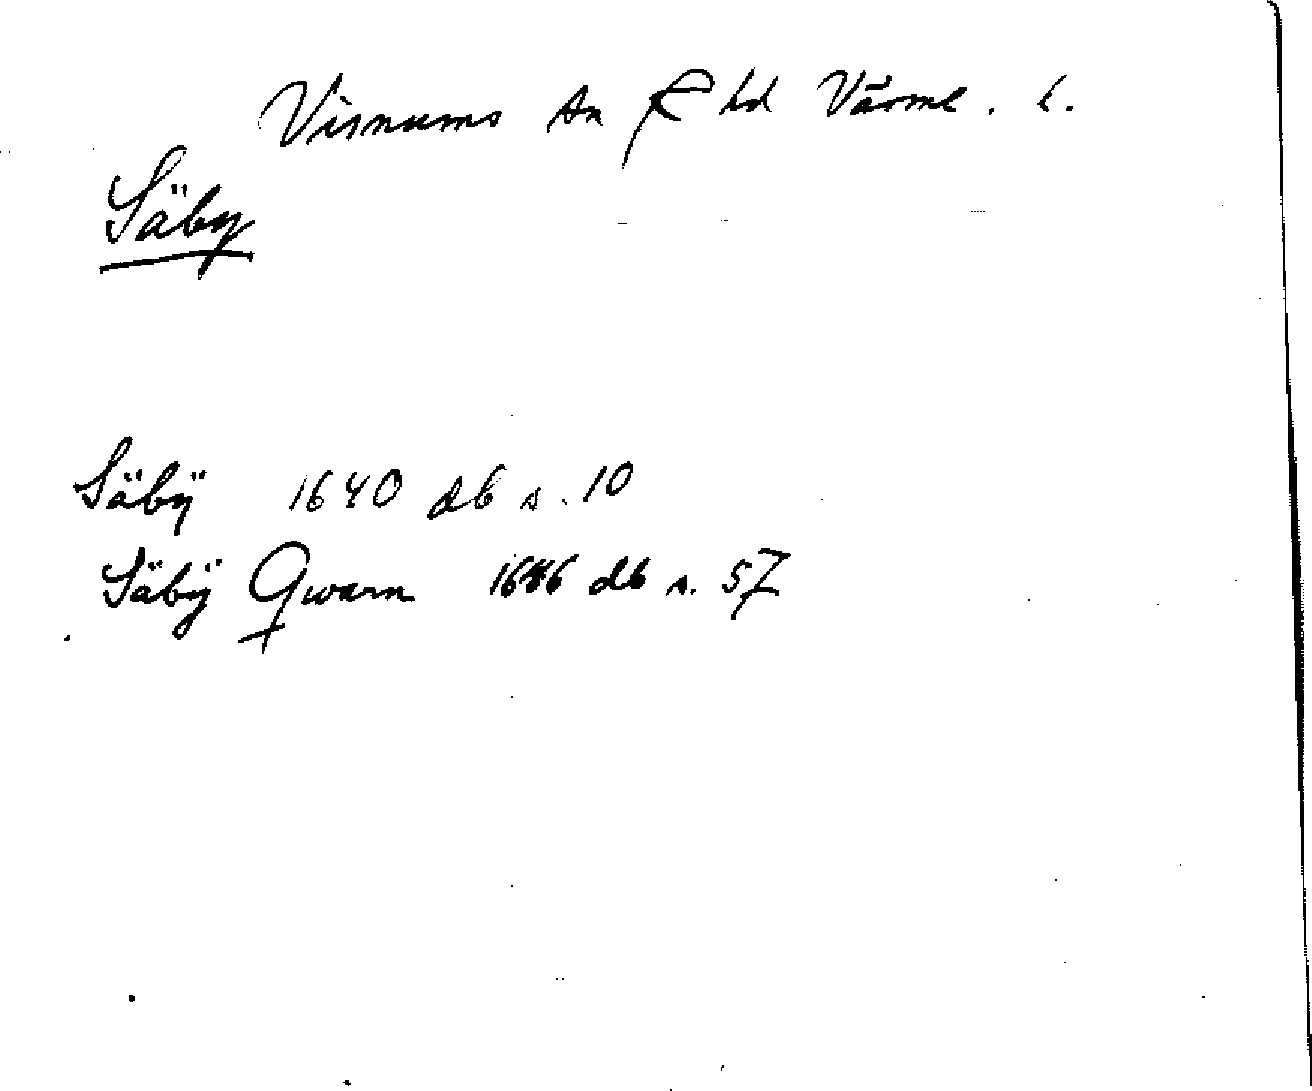 Visnums sn hd Värml. l.
Säby
Säbÿ 1640 db s. 10
Säbÿ Qwarn 1646 db s. 57